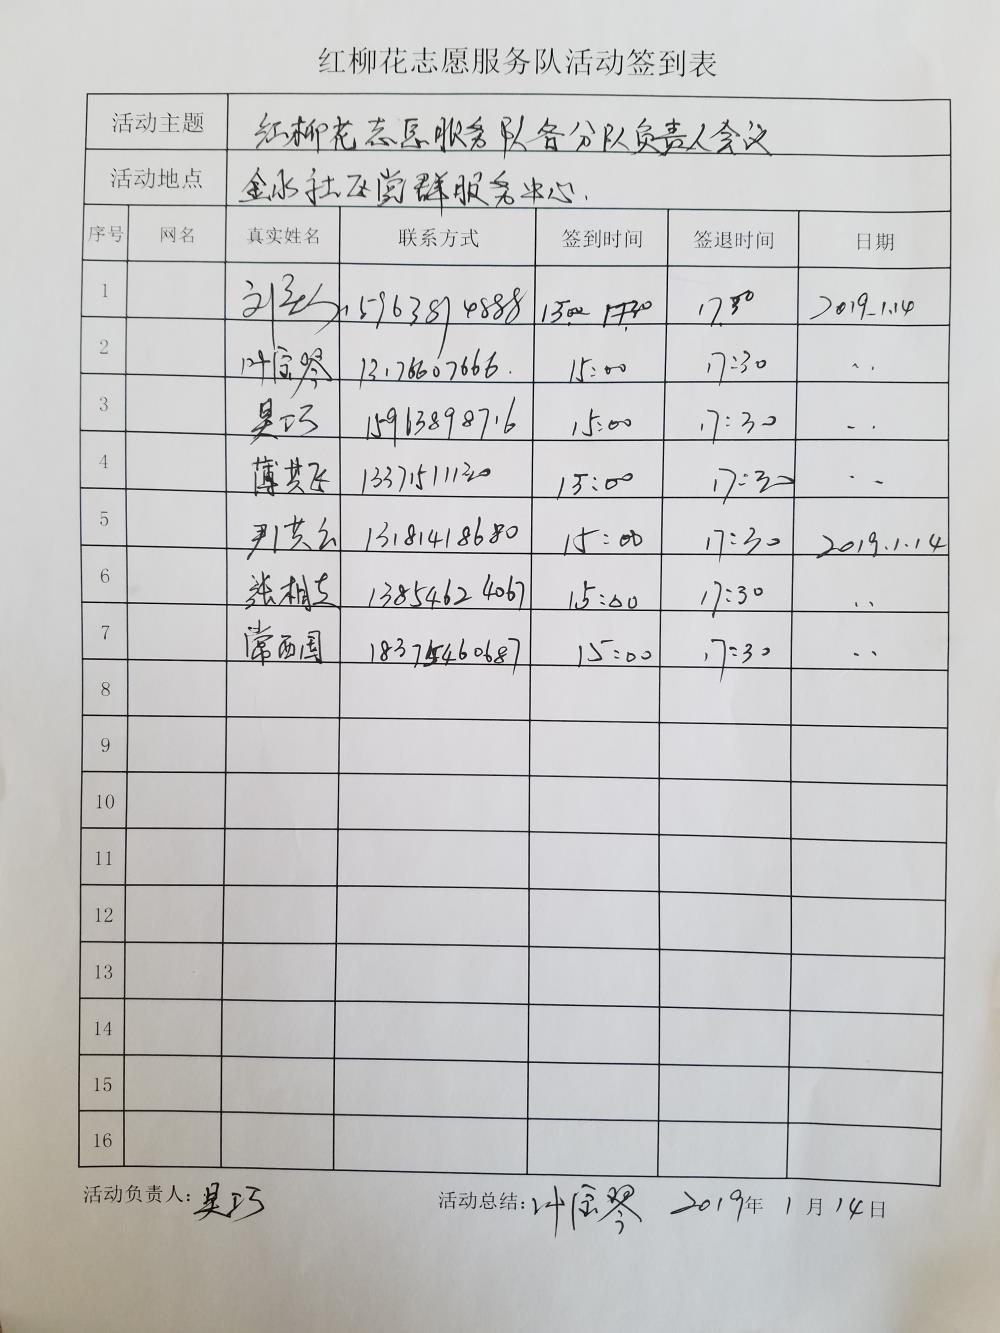 红柳花志愿服务队活动签到表
活动主题 红柳花志愿服务队各分队负责人会议
活动地点 金水社区党群服务中心.
序号 网名 真实姓名 联系方式 签到时间 签退时间 日期
1 刘 15963894888 15:00 17:30 2019.1.14
2 叶宝琴 13176607666. 15:00 17:30 ..
3 吴巧 15963898716 15:00 17:30 ..
4 薄其飞 13371511130 15:00 17:30 ..
5 尹其云 13181418680 15:00 17:30 2019.1.14
6 张相支 13854624067 15:00 17:30 ..
7 常西国 18375460687 15:00 17:30 ..
8
9
10
11
12
13
14
15
16
活动负责人: 吴巧 活动总结: 叶宝琴 2019年1月14日